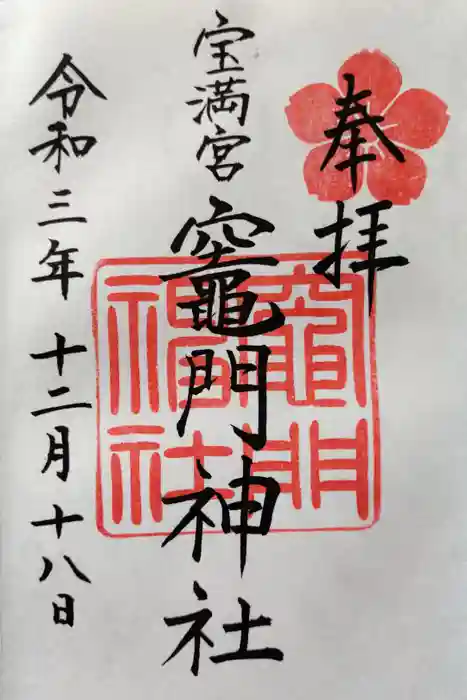 奉拝
宝満宮
竈門神社
令和三年十二月十八日
竈門
神社